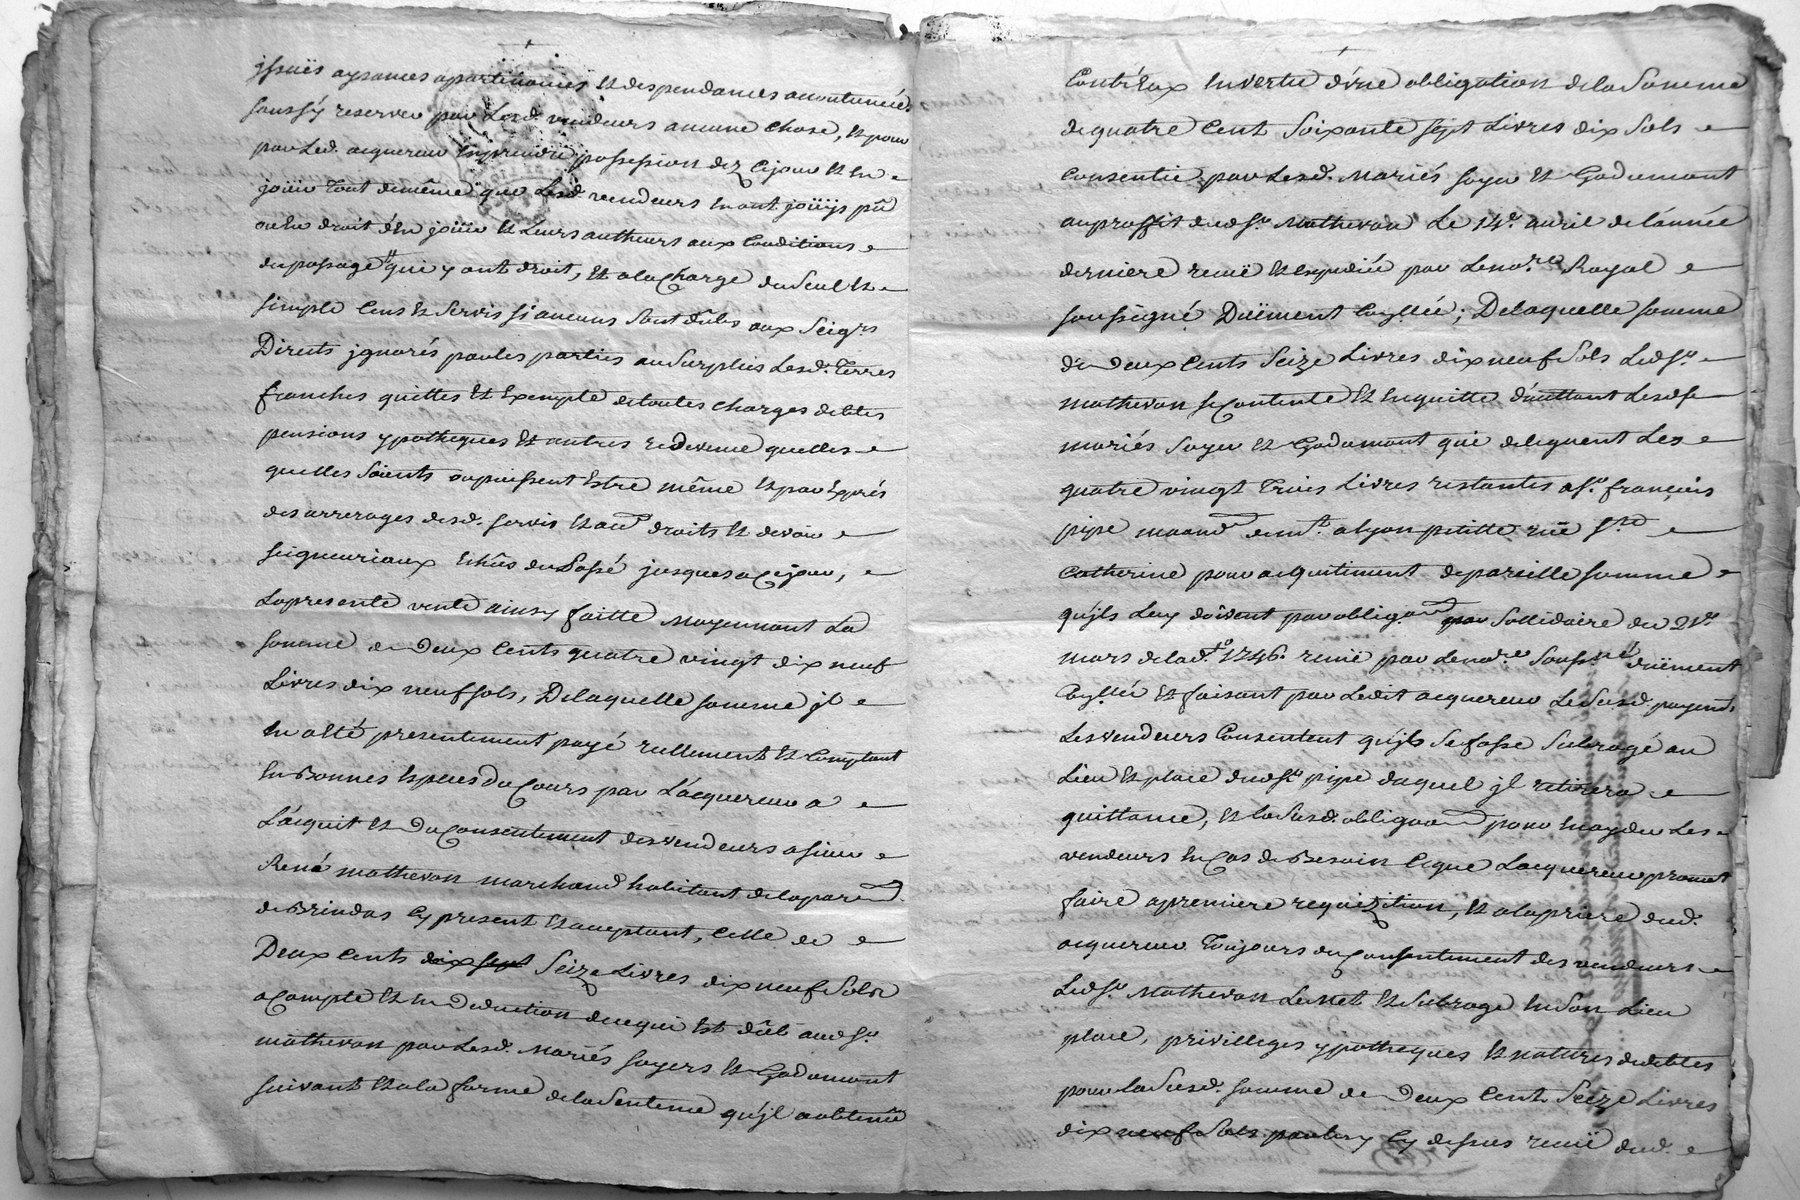 jssuës aysances apartenances et despendances accoutumées
sans s'y reserver par Lesd. vendeurs aucune chose, et pour
par Led. acquereur En prendre possession dez Cejour et En
joüir Tout demême que Lesd. vendeurs En ont joüijs pû
ou Eu droit d'En joüir et Leurs autheurs aux Conditions
du passage qui y ont droit, et ala Charge du seul et
simple Cens et servis si aucuns sont dûbs aux Seigrs
Directs jgnorés par les parties au surplus Lesd. Terres
franches quittes et Exempte de toutes charges debtes
pensions ypotheques et autres redevence quelles
quelles soients ou puissent Estre même et par Exprés
des arrerages desd. servis et au droits et devoir
seigneuriaux Echûs du Passé jusques a Cejour,
La presente vente ainsy faitte Moyennant La
somme de Deux Cents quatre vingt dix neuf
Livres dix neuf sols, De laquelle somme jl
En a Eté presentement payé reellement et Comptant
En Bonnes Especes du Cours par L'acquereur a
L'acquit et du Consentement des vendeurs a sieur
René mathevon marchand habitant de la par
de Brindas Cy present et acceptant, Celle de
Deux Cents dix sept Seize Livres dix neuf Sols
a Compte et En Deduction de ce qui Est dûb aud Sr
mathevon par Lesd. Mariés soyers et Godamont
suivant et a la forme de la Sentence qu'jl a obtenüe
Contr'Eux En vertu d'une obligation de la Somme
de quatre Cent Soixante sept Livres dix Sols
Consentie par Lesd. Mariés soyer et Godamont
au proffit dud Sr Mathevon Le 14e avril de l'année
derniere reçuë et Expediée par Le no.re Royal
soussigné Duëment Coñllée; De laquelle somme
de Deux Cents Seize Livres dix neuf Sols Led Sr
mathevon se Contente et En quitte d'autant Lesd
mariés soyer et Godamont qui deleguent Les
quatre vingt Trois Livres restantes a Sr françois
pipe marchd dem.t a Lyon petitte ruë Ste
Catherine pour acquitiment de pareille somme
qu'jls Luy doivent par obligaon par Sollidaire du 21e
mars de lad. 1746. reçuë par Le no.re Souss.né düement
Coñllée et faisant par Ledit acquereur Le Susd. payem.t
Les vendeurs Consentent qu'jls Se fasse Subrogé au
Lieu et place dud Sr pipe duquel jl retirera
quittance, et La Susd. obligaon pour En ayder Les
vendeurs En Cas de Besoin Ceque Lacquereur promet
faire a premiere requizition, et a la priere dud.
acquereur Toujours du Consentement des vendeurs
Led Sr Mathevon Le Met et Subroge En Son Lieu
place, privilleges ypotheques et natures de debtes
pour la Susd. somme de Deux Cent Seize Livres
dix neuf Sols par luy Cy dessus reçuë dud.